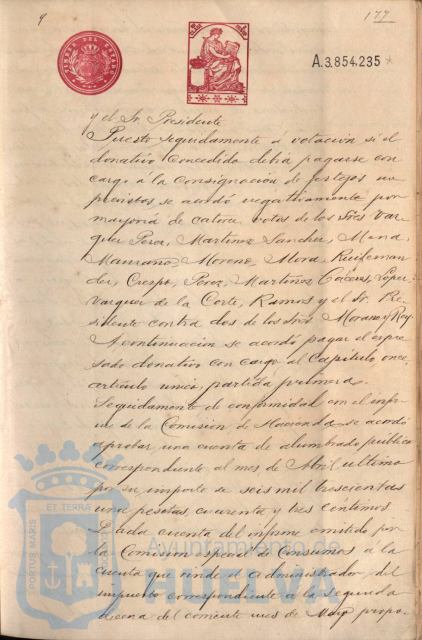 9
177
TIMBRE DEL ESTADO
A.3.854.235
y el Sr. Presidente.
Puesto seguidamente á votación si el
donativo concedido debía pagarse con
cargo á la consignación de festejos im
previstos se acordó negativamente por
mayoría de catorce votos de los Sres Váz
quez Perez, Martinez Sanchez, Mena,
Manzano, Moreno, Mora, Ruifernan
dez, Crespo, Perez, Martinez Cáceres, López
Vazquez de la Corte, Ramos y el Sr. Pre
sidente contra dos de los Sres Morano y Rey.
A continuación se acordó pagar el expre
sado donativo con cargo al Capítulo once,
artículo único, partida primera.
Seguidamente de conformidad con el infor
me de la Comisión de Hacienda se acordó
aprobar una cuenta de alumbrado público
correspondiente al mes de Abril ultimo
por su importe de seis mil trescientas
una pesetas, cuarenta y tres céntimos.
Dada cuenta del informe emitido por
la Comisión especial de Consumos á la
cuenta que rinde el Administrador del
impuesto correspondiente á la segunda
decena del corriente mes de Mayo propo-
PORTUS MARIS
ET TERRÆ
Ayuntamiento de
HUELVA